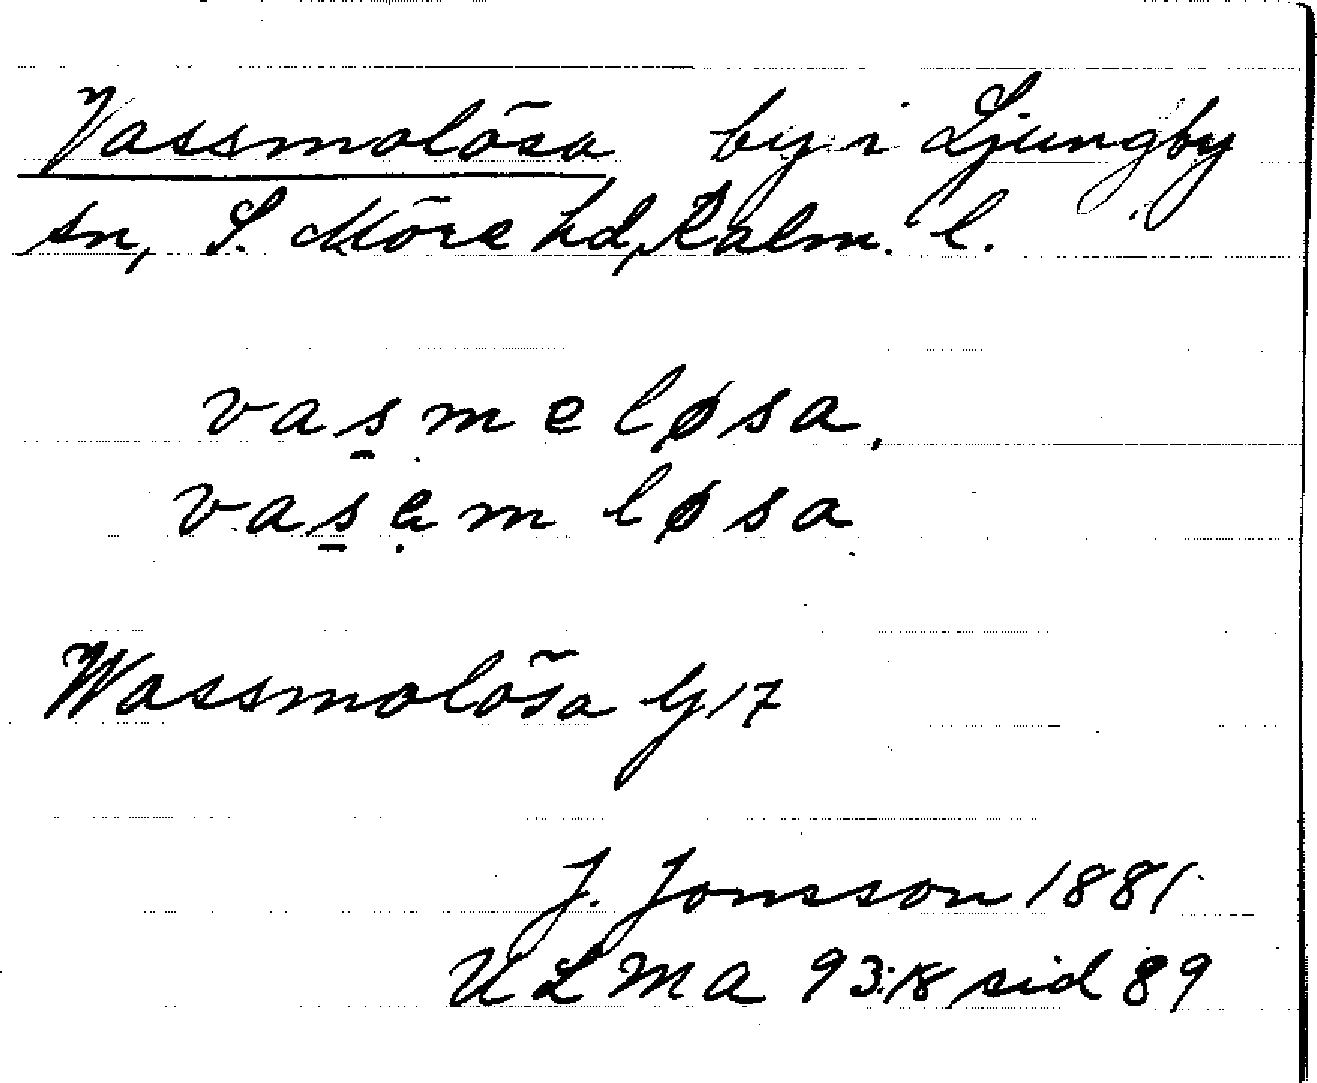 Vassmolösa by i Ljungby
sn, S. Möre hd, Kalm. l.
vas̠meløsa,
vas̠ẹmløsa
Wassmolösa G17
J. Jonsson 1881
ULMA 93:18 sid 89